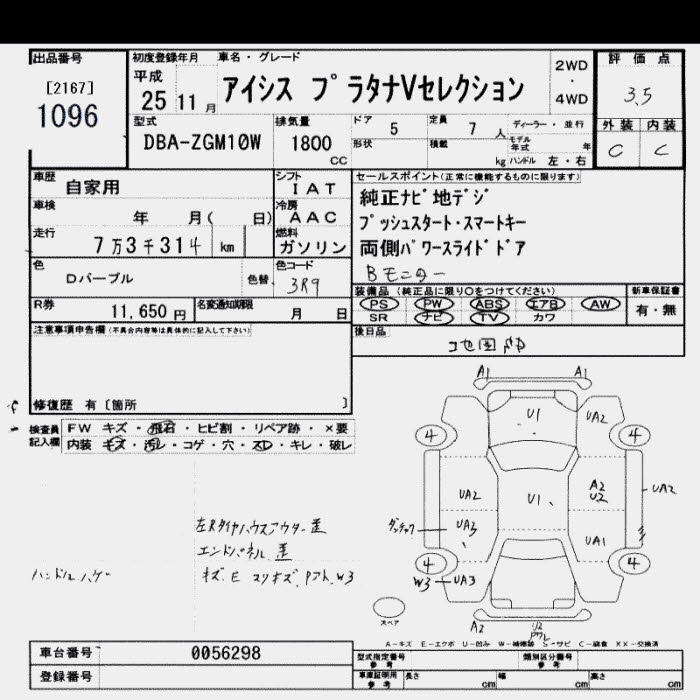 出品番号
[2167]
1096
初度登録年月 車名・グレード
平成
25 11 月
アイシス プラタナVセレクション
2WD
・
4WD
評価点
3.5
外装 内装
C C
型式
DBA-ZGM10W
排気量
1800
CC
ドア 5 定員 7 人
ディーラー・並行
形状 積載 kg
モデル年式 年
ハンドル 左・右
車歴 自家用
シフト IAT
車検 年 月( 日)
冷房 AAC
走行 7万3千314 km
燃料 ガソリン
セールスポイント(正常に機能するものに限ります)
純正ナビ地デジ
プッシュスタート・スマートキー
両側パワースライドドア
Bモニター
色 Dパープル 色替
色コード 3R9
R券 11,650 円
名変通知期限 月 日
装備品(純正品に限り○をつけてください)
PS PW ABS エアB AW
SR ナビ TV カワ
新車保証書
有・無
後日品
注意事項申告欄(不具合内容等は具体的に記入して下さい)
修復歴 有〔箇所 〕
検査員記入欄
FW キズ・飛石・ヒビ割・リペア跡・×要
内装 キズ・汚レ・コゲ・穴・スレ・キレ・破レ
左Rタイヤハウスアウター歪
エンドパネル歪
ハンドルハゲ
A1 A1
U1 UA2
4 4
UA2 U1 A2 U2 UA2
UA3 UA1
4 4
W3 UA3
スペア
A2 U2
A-キズ E-エクボ U-凹み W-補修跡 S-サビ C-腐食 XX-交換済
車台番号 0056298
登録番号
型式指定番号 参考
類別区分番号 参考
車庫証明用 参考
長さ cm 幅 cm 高さ cm